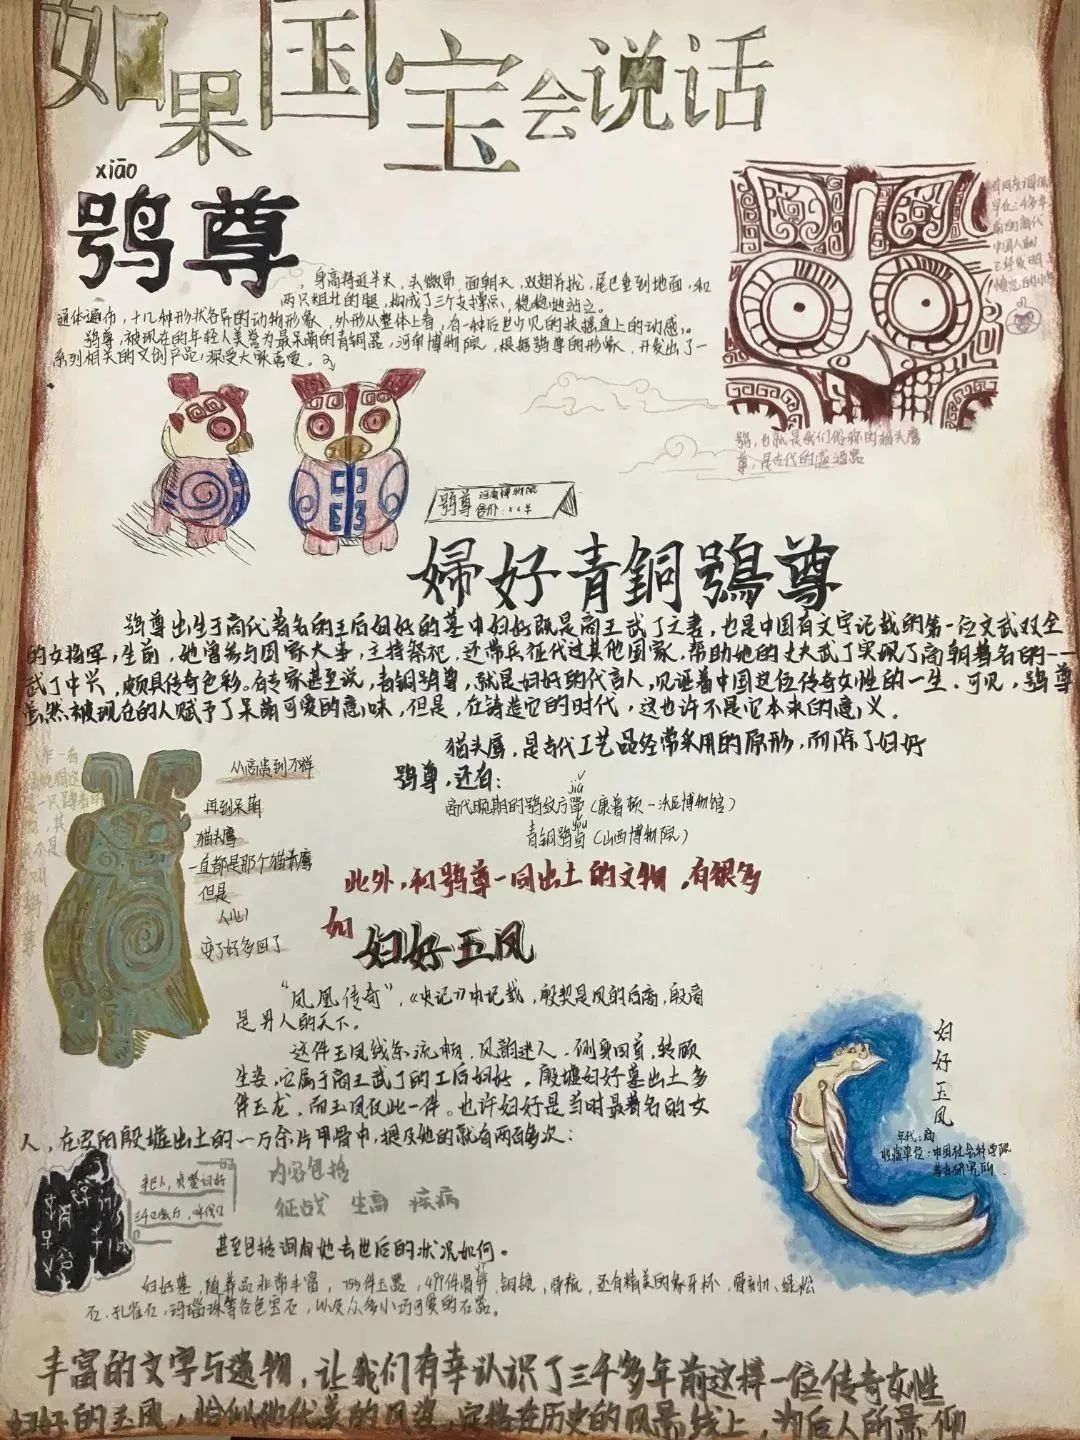 如果国宝会说话
xiāo
鸮尊
身高将近半米，头微昂，面朝天，双翅并拢，尾巴垂到地面，和
两只粗壮的腿，构成了三个支撑点，稳稳地站立。
通体遍布，十几种形状各异的动物形象，外形从整体上看，有一种后世少见的扶摇直上的动感。
鸮尊，被现在的年轻人美誉为最呆萌的青铜器，河南博物院，根据鸮尊的形象，开发出了一
系列相关的文创产品，深受大家喜爱。
早在三千多年
前的商代
中国人就
已经发明
鸮，也就是我们俗称的猫头鹰
尊，是古代的盛酒器
鸮尊 河南博物院
售价：××羊
婦好青銅鴞尊
鸮尊出生于商代著名的王后妇好的墓中妇好既是商王武丁之妻，也是中国有文字记载的第一位文武双全
的女将军，生前，她曾参与国家大事，主持祭祀，还带兵征伐过其他国家，帮助她的丈夫武丁实现了商朝著名的一一
武丁中兴，颇具传奇色彩。有专家甚至说，青铜鸮尊，就是妇好的代言人，见证着中国这位传奇女性的一生。可见，鸮尊
虽然被现在的人赋予了呆萌可爱的意味，但是，在铸造它的时代，这也许不是它本来的意义。
猫头鹰，是古代工艺品经常采用的原形，而除了妇好
鸮尊，还有：
jiǎ
商代晚期的鸮纹方斝（康普顿一沃尼博物馆）
yǒu
青铜鸮卣（山西博物院）
从高贵到万样
再到呆萌
猫头鹰
一直都是那个猫头鹰
但是
人心
变了好多回了
此外，和鸮尊一同出土的文物，有很多
如
妇好玉凤
“凤凰传奇”，《史记》中记载，殷契是凤的后裔，殷商
是男人的天下。
这件玉凤线条流畅，风韵迷人，侧身回首，转顾
生姿，它属于商王武丁的王后妇好，殷墟妇好墓出土多
件玉龙，而玉凤仅此一件。也许妇好是当时最著名的女
人，在安阳殷墟出土的一万余片甲骨中，提及她的就有两百多次：
妇好玉凤
年代：商
收藏单位：中国社会科学院
考古研究所
内容包括
征战 生育 疾病
甚至包括询问她去世后的状况如何。
妇好墓，随葬品非常丰富，755件玉器，499件骨笄，铜镜，骨梳，还有精美的象牙杯，骨刻刀、绿松
石、孔雀石，玛瑙珠等各色宝石，以及众多小巧可爱的石器。
丰富的文字与遗物，让我们有幸认识了三千多年前这样一位传奇女性
妇好的玉凤，恰似她优美的风姿，定格在历史的风景线上，为后人所景仰